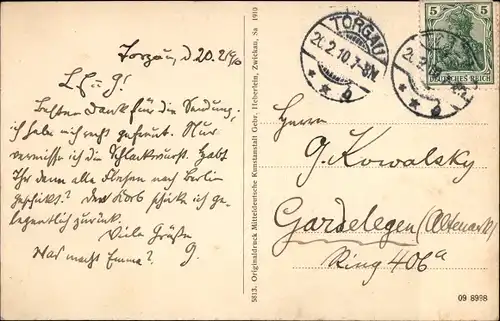 Torgau, d 20.2.10
L E u G!
Besten Dank für die Sendung,
ich habe mich recht gefreut. Nur
vermisse ich die Schlackwurst. Habt
Ihr denn alle nach Berlin
geschickt? Den Korb schicke ich ge-
legentlich zurück.
Viele Grüße
G.
Was macht Emma?
5813. Originaldruck Mitteldeutsche Kunstanstalt Gebr. Heberlein, Zwickau, Sa 1910
TORGAU
20.2.10.7-8N.
* * b
TORGAU
* * b
5 5
DEUTSCHES REICH
Herrn
G. Kowalsky
Gardelegen (Altmark)
Ring 406a
09 8998